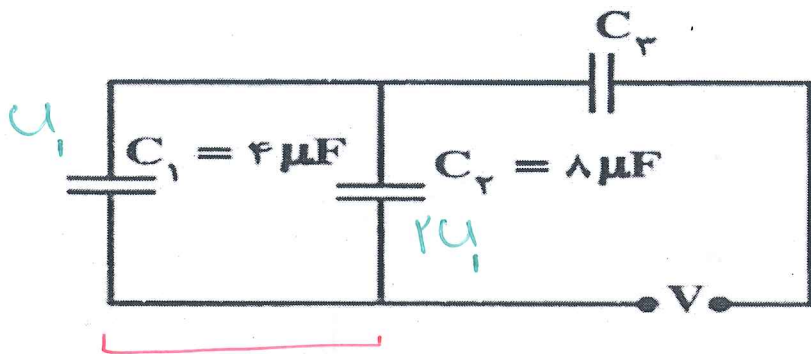 C۳
U۱
C۱ = ۴ μF
C۲ = ۸ μF
۲U۱
V